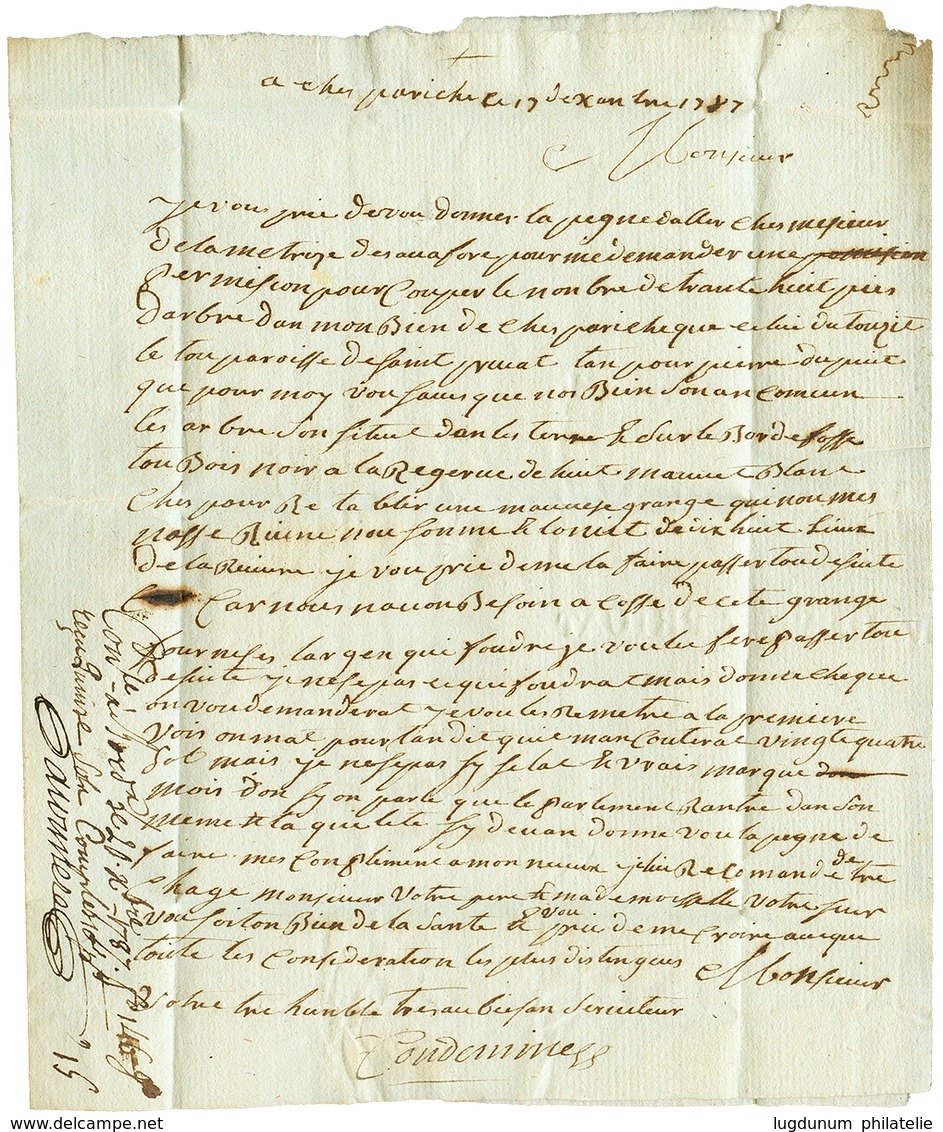 a Ches pariche le 17 dexanbre 1787
Monsieur
je vous prie de vou donner la pegne daller Ches mesieur
de la metrize des au a fore pour me demander une
permision pour Couper le nonbre de trante huit pies
darbre dan mon Bien de Ches pariche que celui du
le tou paroisse de saint privat tan pour pierre dupuit
que pour moy vou saves que nos Bien son an Comeun
les arbre son situe dan les terre & sur le Bor de fosse
tou Bois noir a la Regerve de huit mauvet Blanc
Ches pour Re ta blir une mauvese grange qui nou mes
nasse Ruine nou somme & loniet de dix huit Lieux
de la Riviere je vou prie de me la faire passer tou de suite
Car nous navon Besoin a Cosse de cete grange
pour neses largen que foudra je vou lui fere passer tou
de suite je nese pas ce qui foudrat mais donne che que
on vou demanderat je vou les Remetre a la premiere
vois on mat pourtan dit que man Couterat vingt quatre
sol mais je nese pas sy sela & vrais marque
mois don sy on parle que le parlement Rantre dan son
meme & ta que lete sy devan donne vou la pegne de
faire mes Conpliment a mon neveux je lui Recomande de tre
Chage monsieur votre pere & mademoiselle votre seur
vou soiton Bien de la sante & vou prie de me Croire avec que
toute les Consideration les plus distingues Monsieur
votre tre humble tres aubeisan serviteur
Condemines